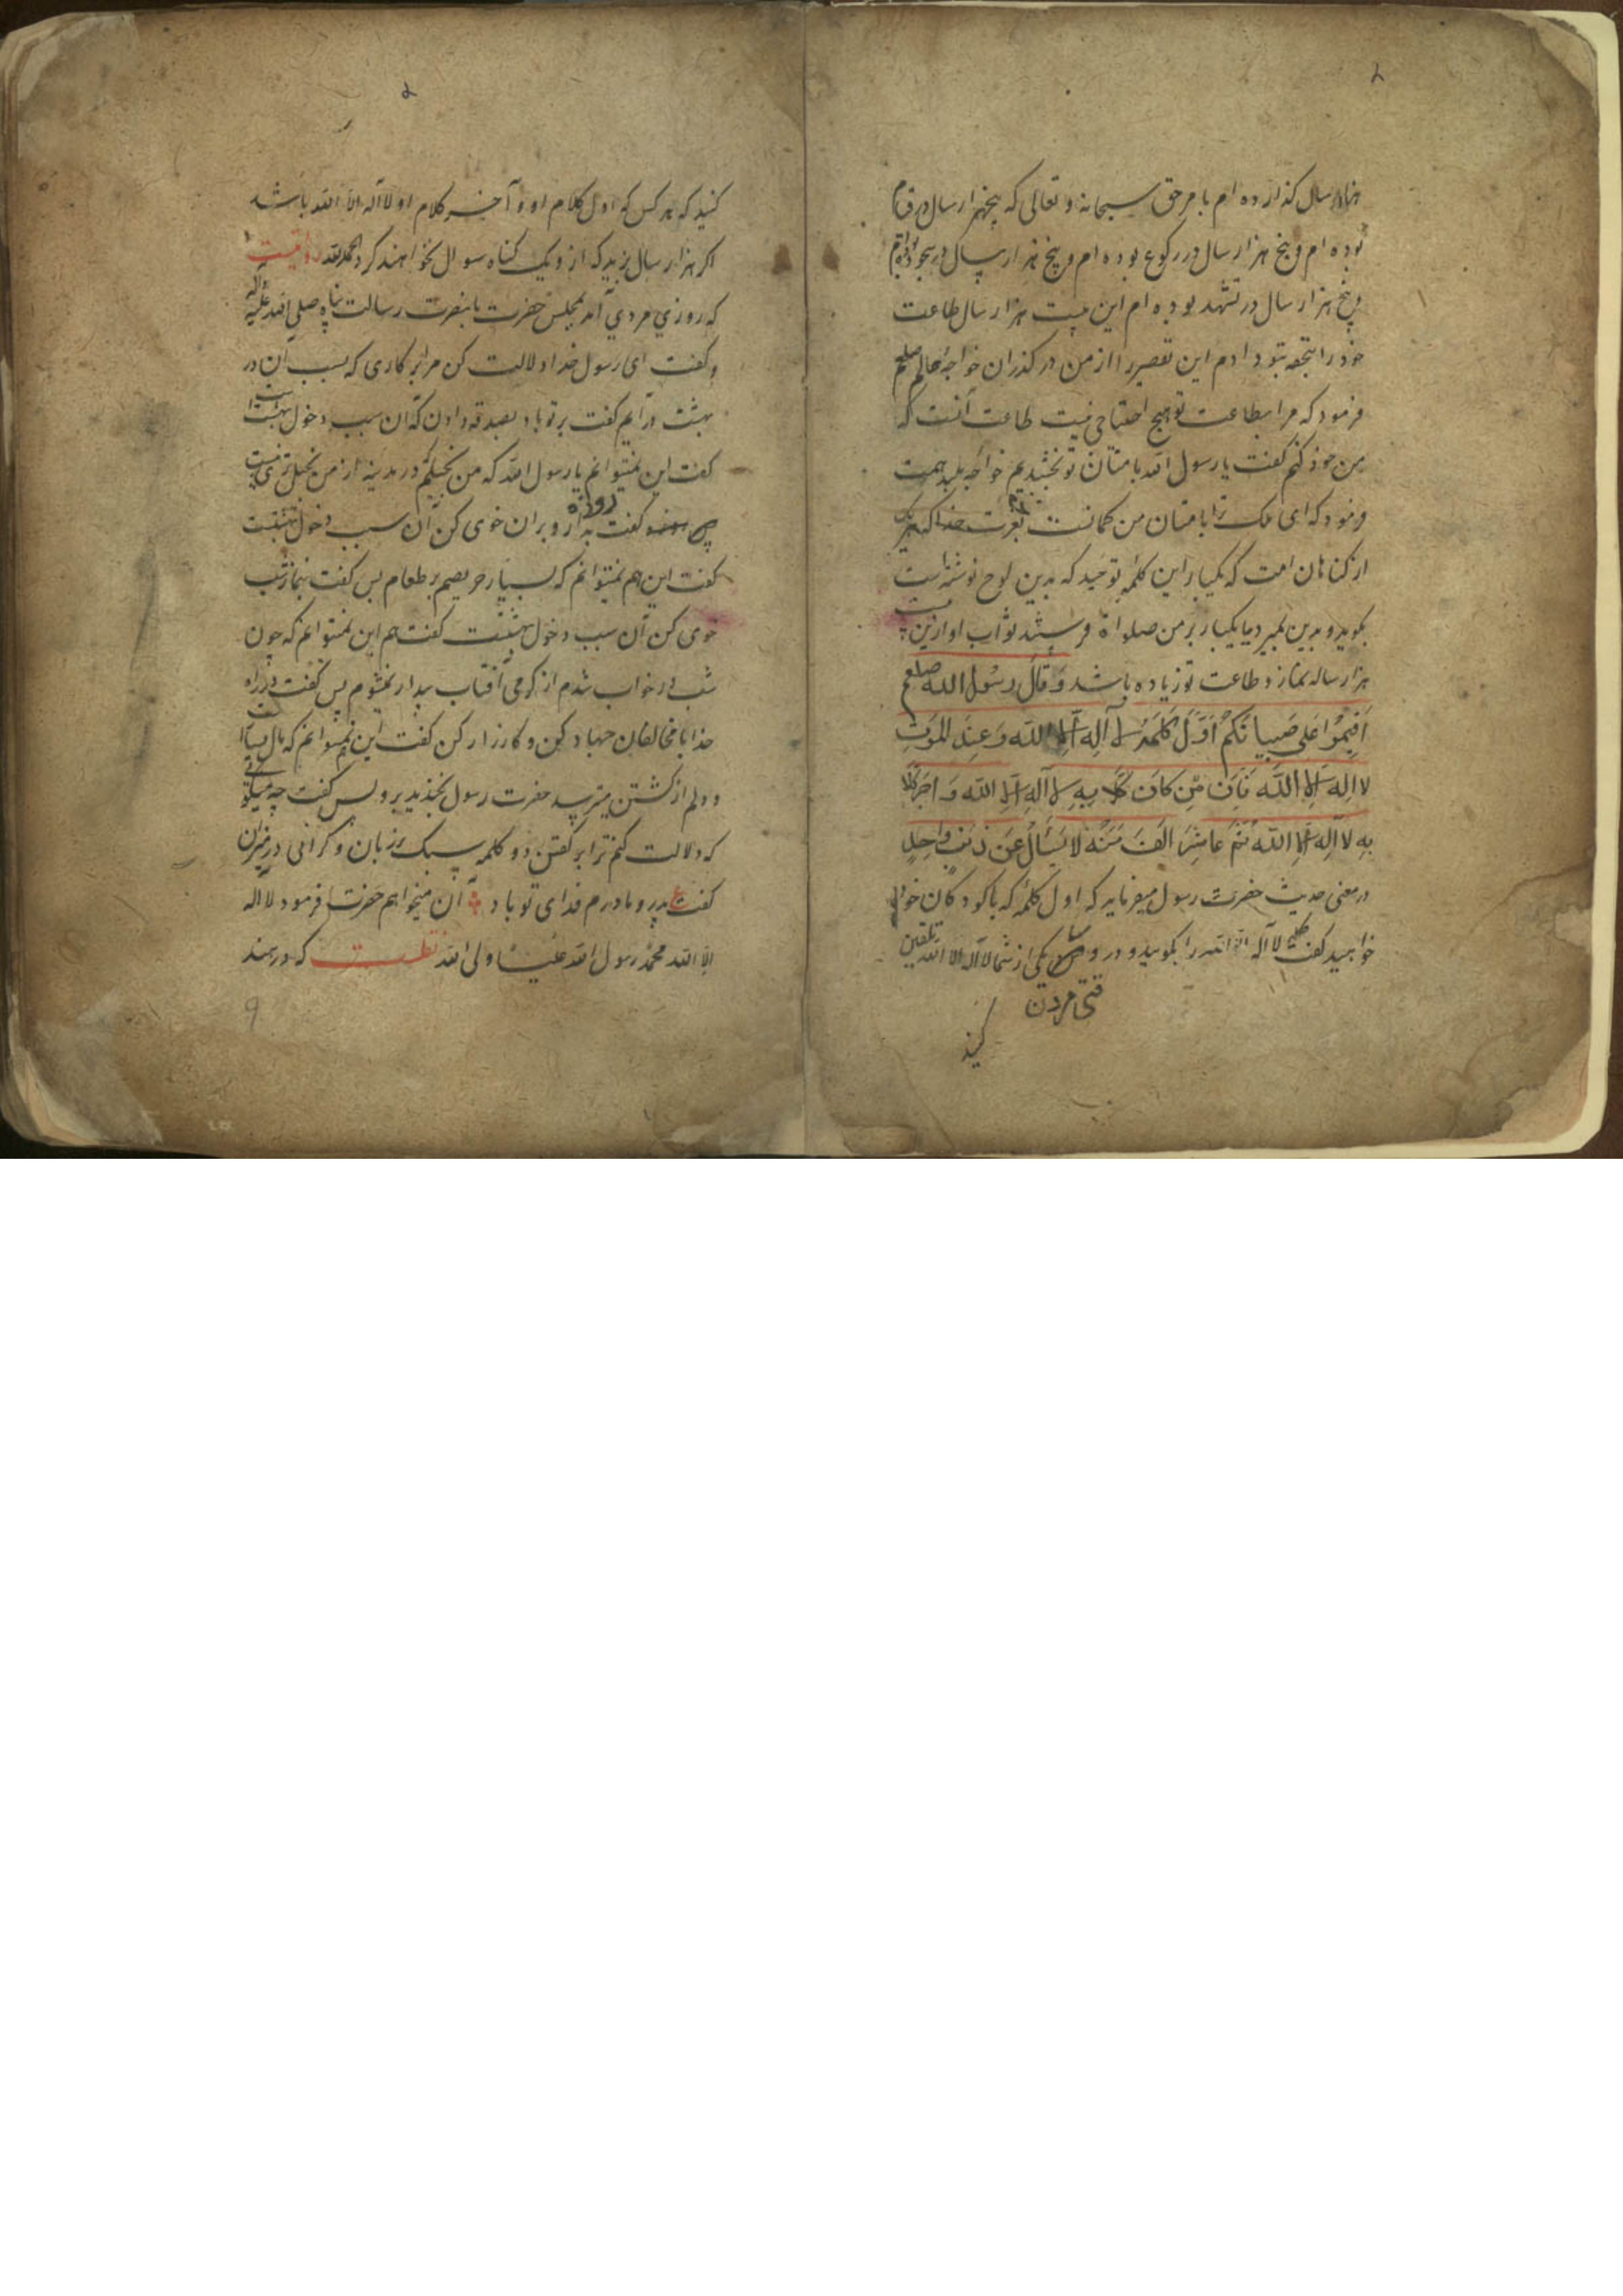 هزار سال گذارده ام بامر حق سبحانه و تعالی که پنجهزار سال در قیام
بوده ام و پنج هزار سال در رکوع بوده ام و پنج هزار سال در سجود بوده ام
و پنج هزار سال در تشهد بوده ام این بیست هزار سال طاعت
خود را بتحفه بتو دادم این تقصیر را از من در گذران خواجه عالم صلعم
فرمود که مرا بطاعت تو هیچ احتیاجی نیست طاعت آنست که
من خود کنم گفت یا رسول الله بامتان تو بخشیدیم خواجه بلند همت
فرمود که ای ملک ترا بامتان من کمانست بعزت خدا که هر یک
از کناهان امت که یکبار این کلمه توحید که بدین لوح نوشته است
بگوید و بدین بمیرد یا یکبار بر من صلواة فرستد ثواب او ازین بیست
هزار ساله نماز و طاعت تو زیاده باشد وَقَالَ رَسُول الله صلعم
اَقیمُوا عَلی صَبیانَکُم اَوَّلَ کَلَمَةٍ لا آلِهَ اِلَّا اللّه وَ عِندَ المَوتِ
لا اِلهَ اِلَّا اللّه فَاِنَ مَن کانَ بِهِ لا آلِهَ اِلَّا اللّه وَ آخر کلا
بِهِ لا آلِهَ اِلَّا اللّه ثُمَّ عاشَرَ الفَ سَنَه لا یَسئَالُ عَن ذَنبٍ واحِدٍ
در معنی حدیث حضرت رسول میفرماید که اول کلمه که با کودکان خود
خواهید گفت کلمه لا آله الا الله را بگویید و در وقت یکی از شما لا آله الا الله تلقین
فتی مردن
کنید
کنید که هر کس که اول کلام او و آخر کلام او لا آله الا الله باشد
اگر هزار سال بزید که از و یک کناه سوال نخواهند کرد الحمد لله روایتست
که روزی مردی آمد بمجلس حضرت با نصرت رسالت پناه صلی الله علیه وآله
و گفت ای رسول خدا دلالت کن مرا بر کاری که بسبب آن در
بهشت در آیم گفت بر تو باد بصدقه دادن که آن سبب دخول بهشت است
گفت این نمیتوانم یا رسول الله که من بخیلم و در مدینه از من بخیل تری نیست
پس گفت بروزه و بر آن خوی کن آن سبب دخول بهشتست
گفت این هم نمیتوانم که بسیار حریصم بر طعام پس گفت بنماز شب
خوی کن آن سبب دخول بهشتست گفت هم این نمیتوانم که چون
شب در خواب شدم از گرمی آفتاب بیدار نمیشوم پس گفت در راه
خدا با مخالفان جهاد کن و کارزار کن گفت این نمیتوانم که مال بسیار است
و دلم از کشتن میترسد حضرت رسول بخندید بر و پس گفت چه میگوئی
که دلالت کنم ترا بر گفتن دو کلمه سبک بر زبان و گرانی در میزان
گفت پدر و مادرم فدای تو باد آن میخواهم حضرت فرمود لا اله
الا الله محمد رسول الله علیا ولی الله نقلست که در هند
9